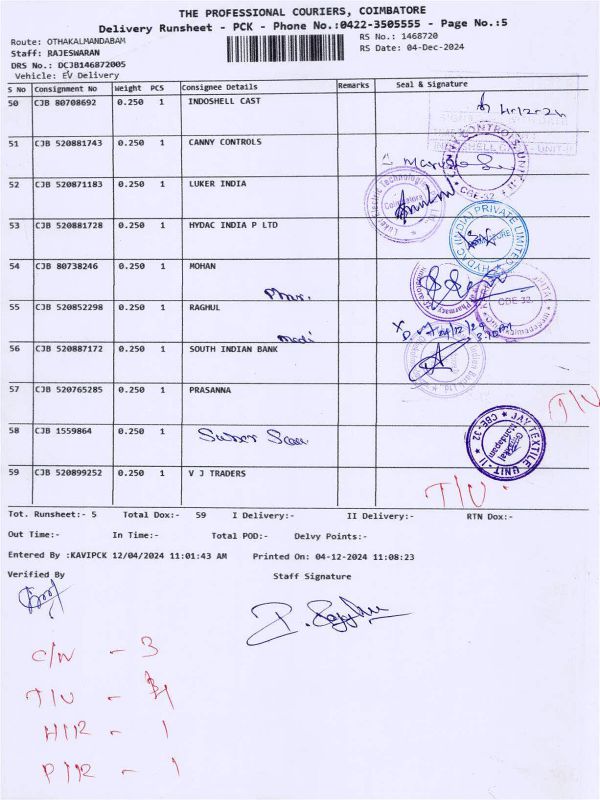 THE PROFESSIONAL COURIERS, COIMBATORE
Delivery Runsheet - PCK - Phone No.:0422-3505555 - Page No.:5
Route: OTHAKALMANDABAM RS No.: 1468720
Staff: RAJESWARAN RS Date: 04-Dec-2024
DRS No.: DCJB146872005
Vehicle: EV Delivery
S No Consignment No Weight PCS Consignee Details Remarks Seal & Signature
50 CJB 80708692 0.250 1 INDOSHELL CAST
51 CJB 520881743 0.250 1 CANNY CONTROLS
52 CJB 520871183 0.250 1 LUKER INDIA
53 CJB 520881728 0.250 1 HYDAC INDIA P LTD
HYDAC (INDIA) PRIVATE LIMITED
54 CJB 80738246 0.250 1 MOHAN
CBE-32.
55 CJB 520852298 0.250 1 RAGHUL
56 CJB 520887172 0.250 1 SOUTH INDIAN BANK
57 CJB 520765285 0.250 1 PRASANNA
T/U
58 CJB 1559864 0.250 1
JAY TEXTILE UNIT-II CBE-32
59 CJB 520899252 0.250 1 V J TRADERS
T/U.
Tot. Runsheet:- 5 Total Dox:- 59 I Delivery:- II Delivery:- RTN Dox:-
Out Time:- In Time:- Total POD:- Delvy Points:-
Entered By :KAVIPCK 12/04/2024 11:01:43 AM Printed On: 04-12-2024 11:08:23
Verified By Staff Signature
C/N - 3
T/U -
H/R - 1
P/R - 1